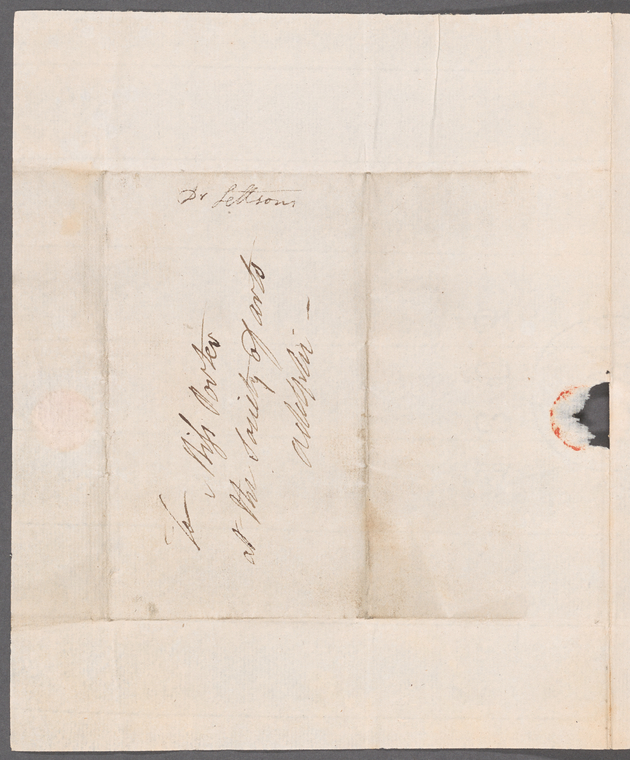 Dr Lettsom
To Miss Porter
at the Society of arts
adelphi —